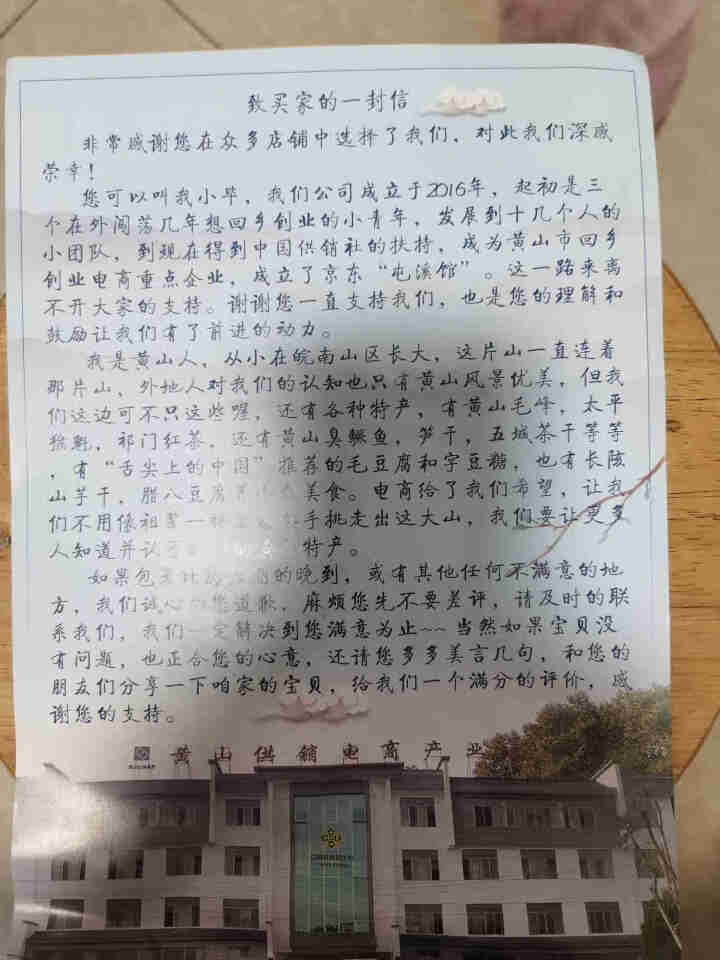 致买家的一封信
非常感谢您在众多店铺中选择了我们，对此我们深感
荣幸！
您可以叫我小毕，我们公司成立于2016年，起初是三
个在外闯荡几年想回乡创业的小青年，发展到十几个人的
小团队，到现在得到中国供销社的扶持，成为黄山市回乡
创业电商重点企业，成立了京东“屯溪馆”。这一路来离
不开大家的支持。谢谢您一直支持我们，也是您的理解和
鼓励让我们有了前进的动力。
我是黄山人，从小在皖南山区长大，这片山一直连着
那片山，外地人对我们的认知也只有黄山风景优美，但我
们这边可不只这些喔，还有各种特产，有黄山毛峰，太平
猴魁，祁门红茶，还有黄山臭鳜鱼，笋干，五城茶干等等
，有“舌尖上的中国”推荐的毛豆腐和字豆糖，也有长陔
山芋干，腊八豆腐美食。电商给了我们希望，让我
们不用像祖辈一手挑走出这大山，我们要让更多
人知道并认特产。
如果包的晚到，或有其他任何不满意的地
方，我们诚心您道歉，麻烦您先不要差评，请及时的联
系我们，我们一定解决到您满意为止~~当然如果宝贝没
有问题，也正合您的心意，还请您多多美言几句，和您的
朋友们分享一下咱家的宝贝，给我们一个满分的评价，感
谢您的支持。
黄山供销电商产业